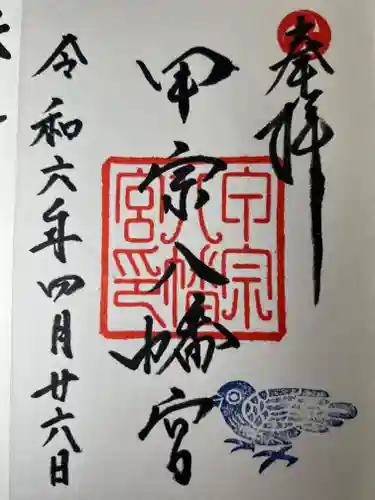 奉拝
甲宗八幡宮
甲宗八幡宮印
令和六年四月廿六日